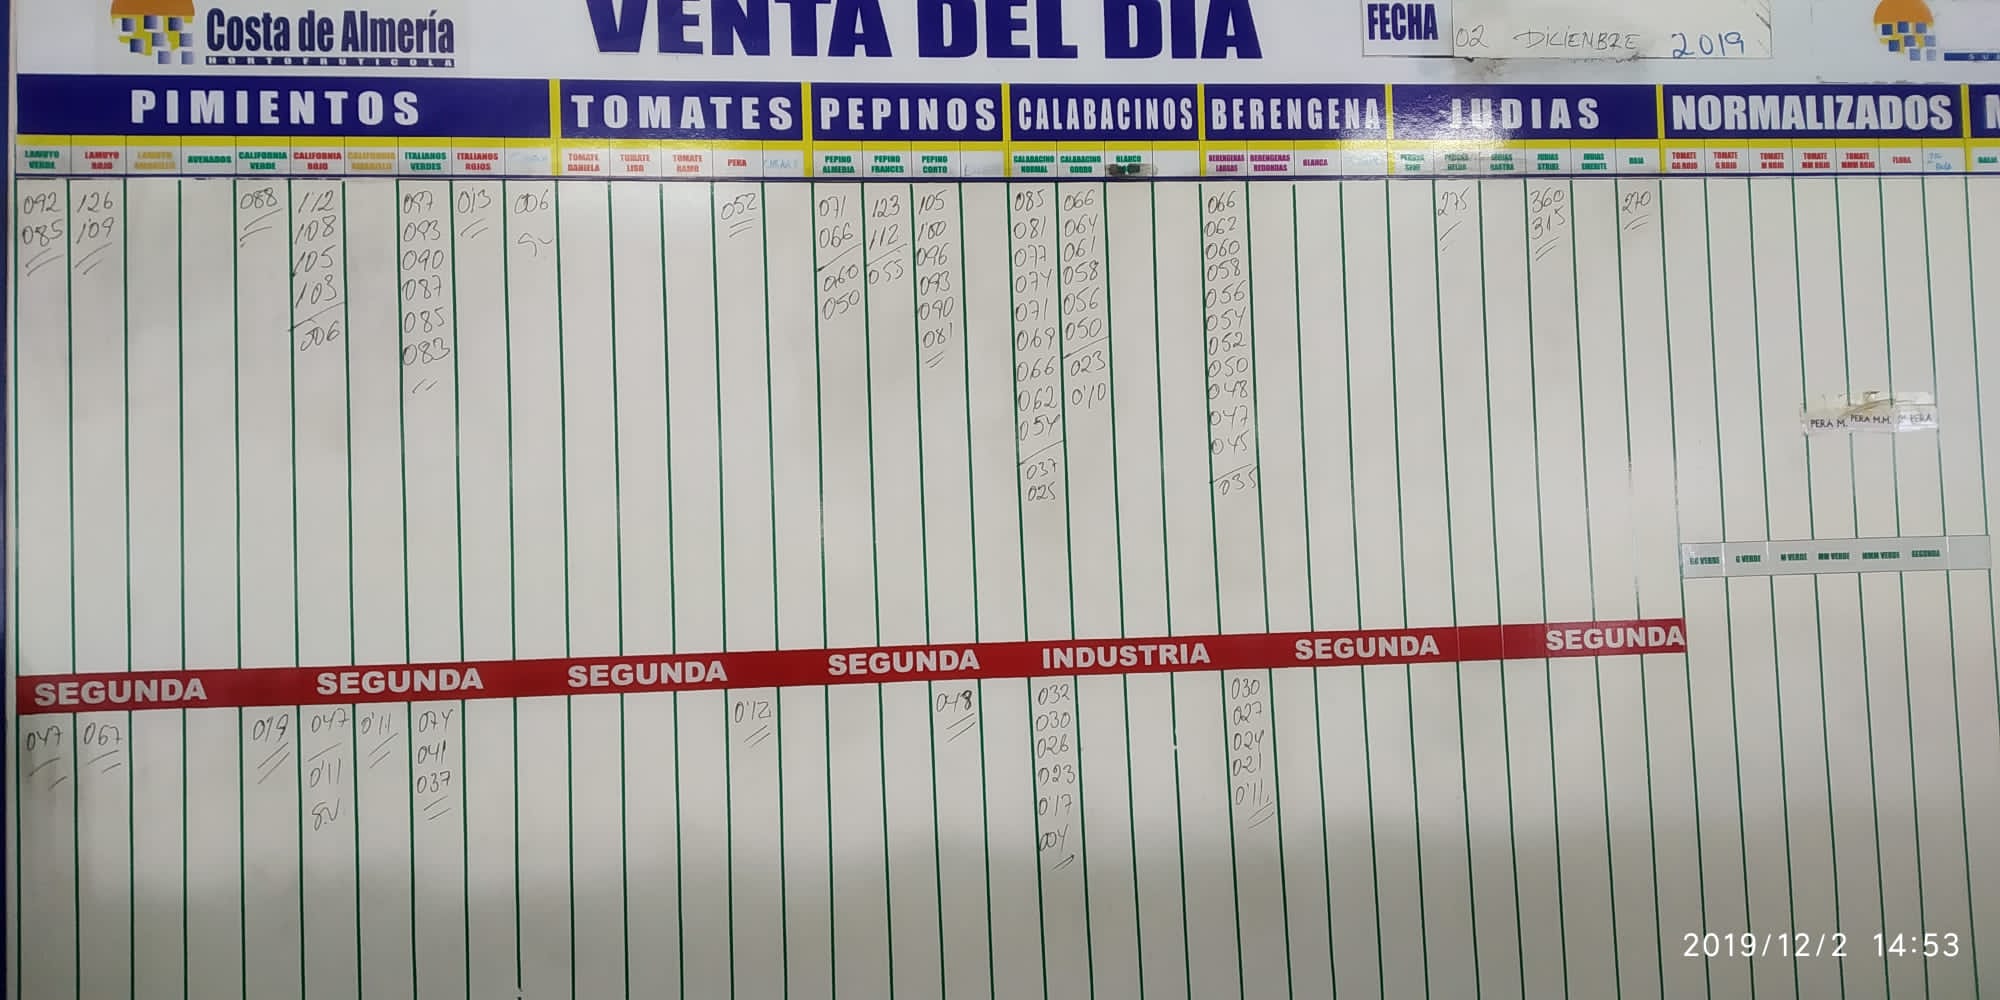 Costa de Almería
HORTOFRUTICOLA
VENTA DEL DIA
FECHA
02 DICIENBRE 2019
PIMIENTOS TOMATES PEPINOS CALABACINOS BERENGENA JUDIAS NORMALIZADOS
LAMUYO VERDE
LAMUYO ROJO
LAMUYO AMARILLO
AVENADOS
CALIFORNIA VERDE
CALIFORNIA ROJO
CALIFORNIA AMARILLO
ITALIANOS VERDES
ITALIANOS ROJOS
TOMATE DANIELA
TOMATE LISO
TOMATE RAMO
PERA
PEPINO ALMERIA
PEPINO FRANCES
PEPINO CORTO
CALABACINO NORMAL
CALABACINO GORDO
BLANCO
BERENGENAS LARGAS
BERENGENAS REDONDAS
BLANCA
JUDIAS RASTRA
JUDIAS STRIKE
JUDIAS EMERITE
ROJA
TOMATE GG ROJO
TOMATE G ROJO
TOMATE M ROJO
TOMATE MM ROJO
TOMATE MMM ROJO
FLORA
092 126 088 112 097 0'13 006 052 071 123 105 085 066 066 275 360 270
085 109 108 093 066 112 100 081 064 062 315
105 090 060 055 096 077 061 060
103 087 050 093 074 058 058
006 085 090 071 056 056
083 081 069 050 054
066 023 052
062 0'10 050
054 048
037 047
025 045
035
PERA M. PERA M.M. PERA
GG VERDE G VERDE M VERDE MM VERDE MMM VERDE SEGUNDA
SEGUNDA SEGUNDA SEGUNDA SEGUNDA INDUSTRIA SEGUNDA SEGUNDA
047 067 019 047 0'11 074 0'12 048 032 030
0'11 041 030 027
S.V. 037 026 024
023 021
0'17 0'11
004
2019/12/2 14:53